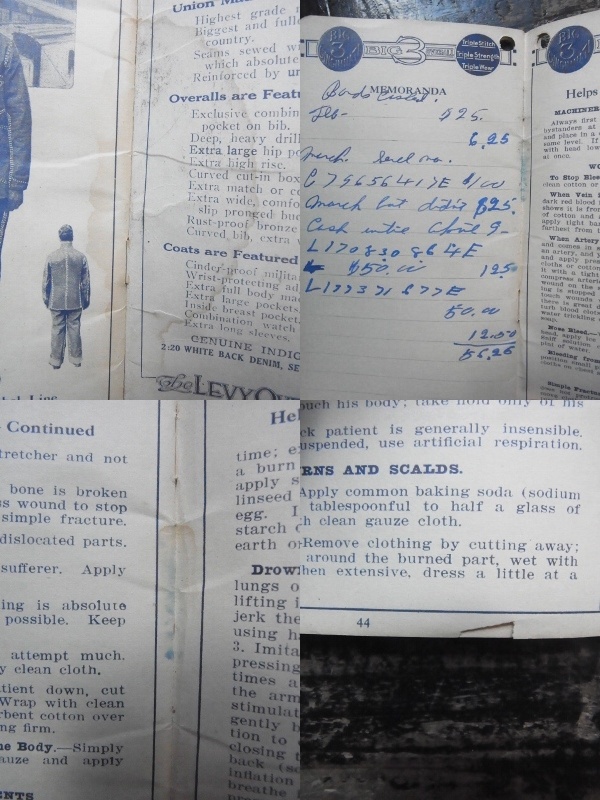 Union Ma
Highest grade
Biggest and full
country.
Seams sewed w
which absolute
Reinforced by un
Overalls are Featu
Exclusive combin
pocket on bib.
Deep, heavy drill
Extra large hip po
Extra high rise.
Curved cut-in box
Extra match or co
Extra wide, comfo
slip pronged buc
Rust-proof bronze
Curved bib, extra
Coats are Featured
Cinder-proof milita
Wrist-protecting ad
Extra full body mad
Extra large pockets
Inside breast pocket
Combination watch
Extra long sleeves.
GENUINE INDIG
2:20 WHITE BACK DENIM, SE
The LEVY OV
BIG 3
BIG 3
Triple Stitch
Triple Strength
Triple Wear
MEMORANDA
Bonds
Feb- $25.
6.25
March.
C79656417E $100
March $25.
Cash April 9-
L170830864E
$50.00 125
L177371877E
50.00
12.50
56.25
BIG 3
Helps
MACHINER
Always first
bystanders at
and place in a c
same level. If
with head low
at once.
WO
To Stop Blee
clean cotton or
When Vein
dark red blood
shows it is from
of cotton and
apply tight ban
farthest from t
When Artery
and comes in s
an artery, and
and apply pres
of cotton
it with a tight
compress artery
wound on the
lung is stopped
touch wounds
there is great d
dark blood clots
water trickling
soup.
Nose Bleed.
plat of water.
Bleeding from
Simple Fractur
Continued
tretcher and not
bone is broken
ss wound to stop
simple fracture.
dislocated parts.
sufferer. Apply
ing is absolute
possible. Keep
attempt much.
y clean cloth.
tient down, cut
Wrap with clean
rbent cotton over
ng firm.
he Body.—Simply
auze and apply
ENTS
Hel
time; e
a burn
apply s
linseed
egg. I
starch
earth or
Drow
lungs o
lifting i
jerk the
using h
3. Imita
pressing
times a
the arm
stimulat
gently h
tion to
closing t
back (s
inflation
breathe
ouch his body; take hold only of his
ck patient is generally insensible.
uspended, use artificial respiration.
RNS AND SCALDS.
Apply common baking soda (sodium
tablespoonful to half a glass of
h clean gauze cloth.
Remove clothing by cutting away;
around the burned part, wet with
hen extensive, dress a little at a
44